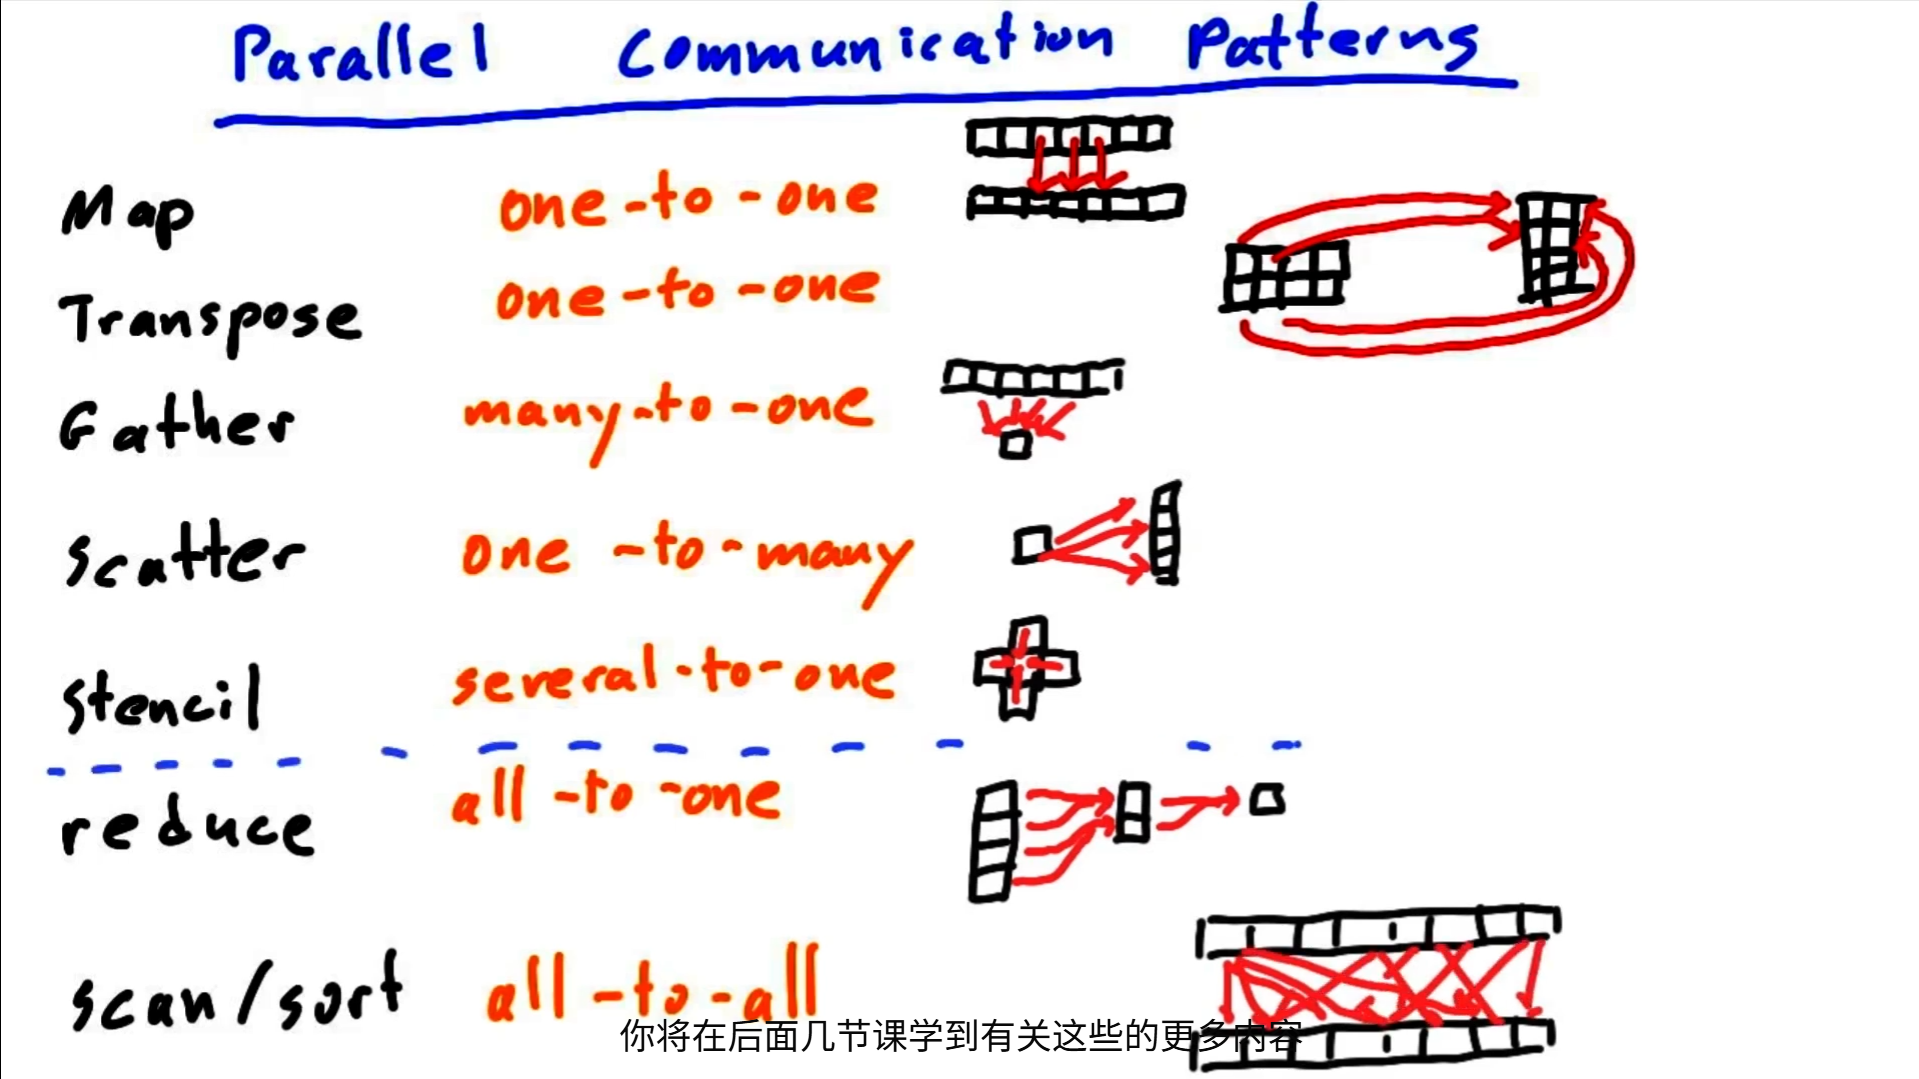 Parallel Communication Patterns
Map one-to-one
Transpose one-to-one
Gather many-to-one
Scatter one-to-many
Stencil several-to-one
reduce all-to-one
scan/sort all-to-all
你将在后面几节课学到有关这些的更多内容